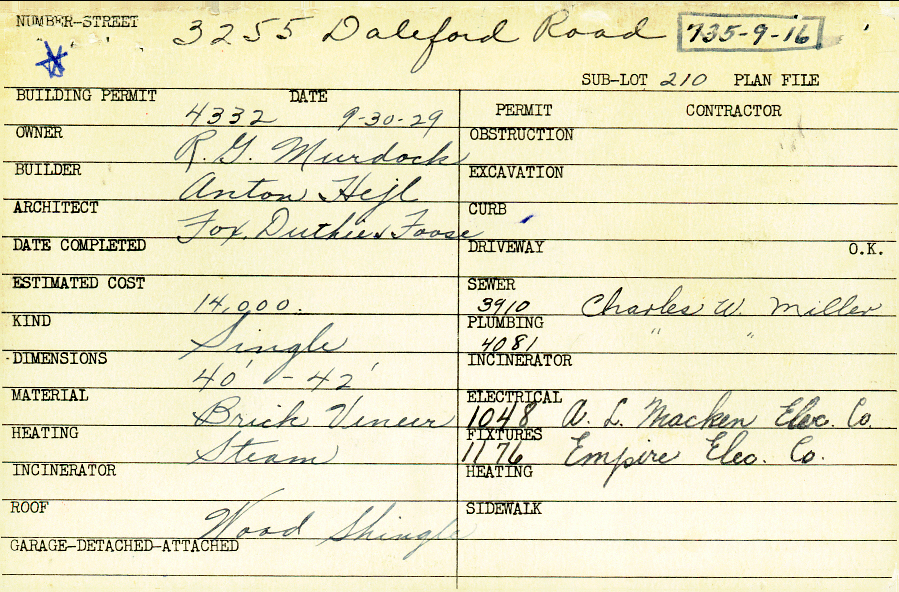 NUMBER-STREET 3255 Daleford Road 735-9-16
SUB-LOT 210 PLAN FILE
BUILDING PERMIT 4332 DATE 9-30-29
OWNER R. G. Murdock
BUILDER Anton Hejl
ARCHITECT Fox, Duthie & Foose
DATE COMPLETED
ESTIMATED COST 14,000.
KIND Single
DIMENSIONS 40' - 42'
MATERIAL Brick Veneer
HEATING Steam
INCINERATOR
ROOF Wood Shingle
GARAGE-DETACHED-ATTACHED
PERMIT CONTRACTOR
OBSTRUCTION
EXCAVATION
CURB
DRIVEWAY O.K.
SEWER 3910 Charles W. Miller
PLUMBING 4081 " "
INCINERATOR
ELECTRICAL 1048 A. L. Macken Elec. Co.
FIXTURES 1176 Empire Elec. Co.
HEATING
SIDEWALK